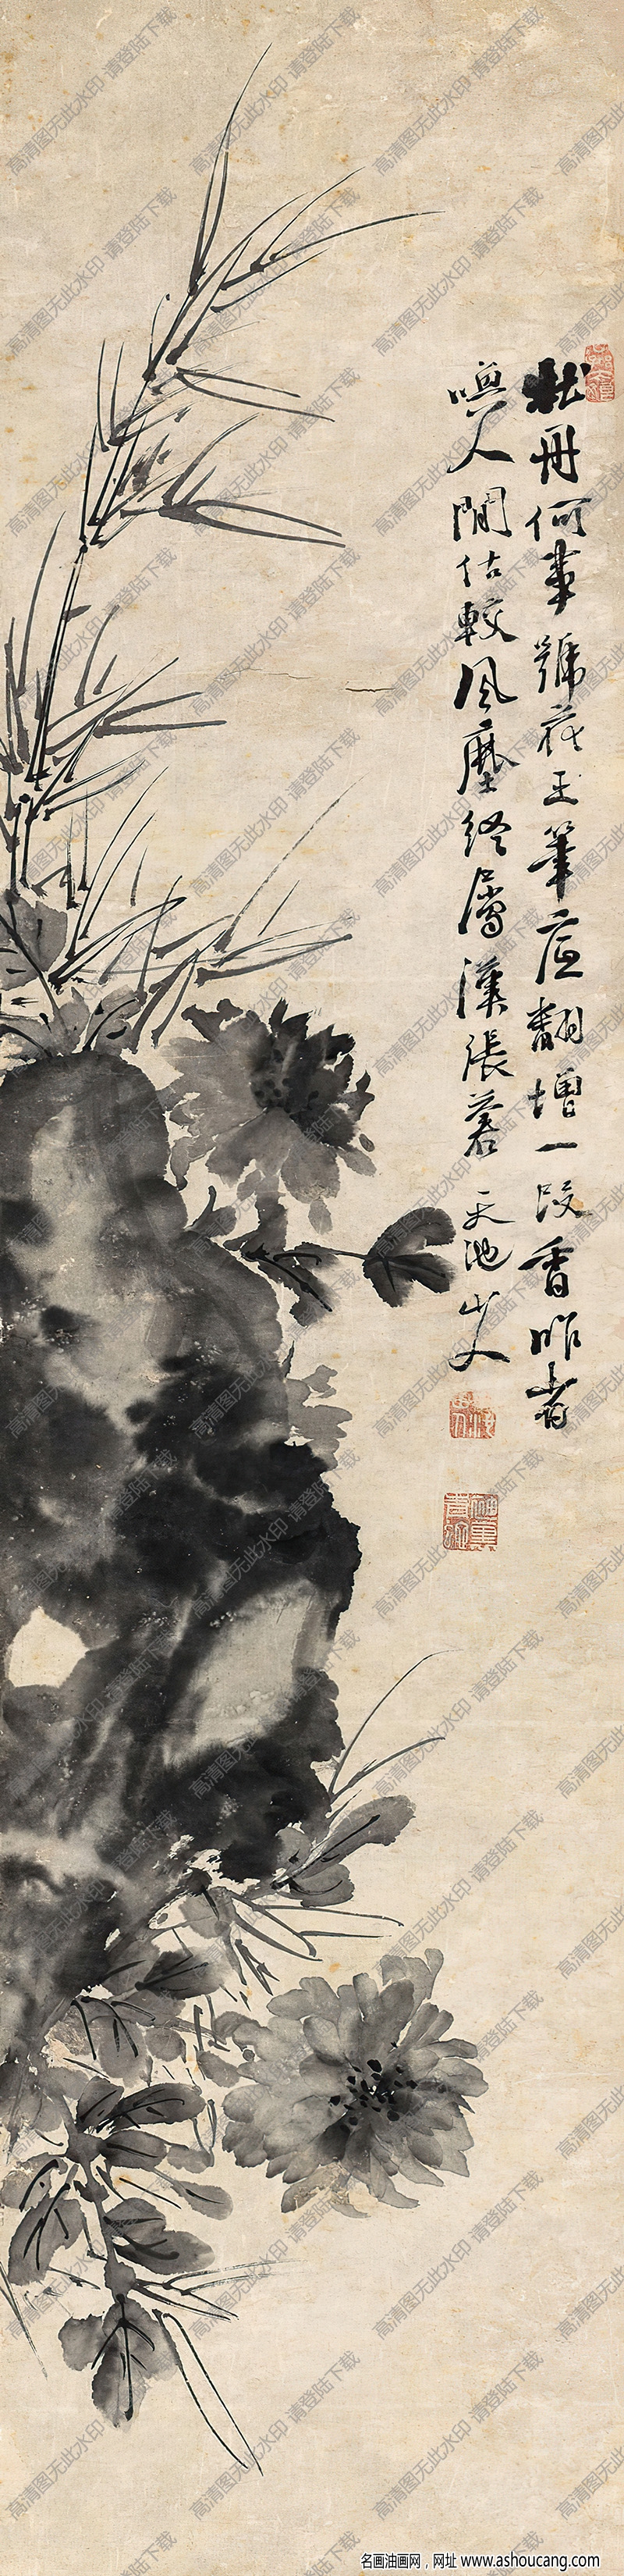 牡丹何事號花王筆底翻增一段香昨者
嘆人閒估較風塵終屬漢張蒼 天池山人
高清图无此水印 请登陆下载
名画油画网，网址 www.ashoucang.com